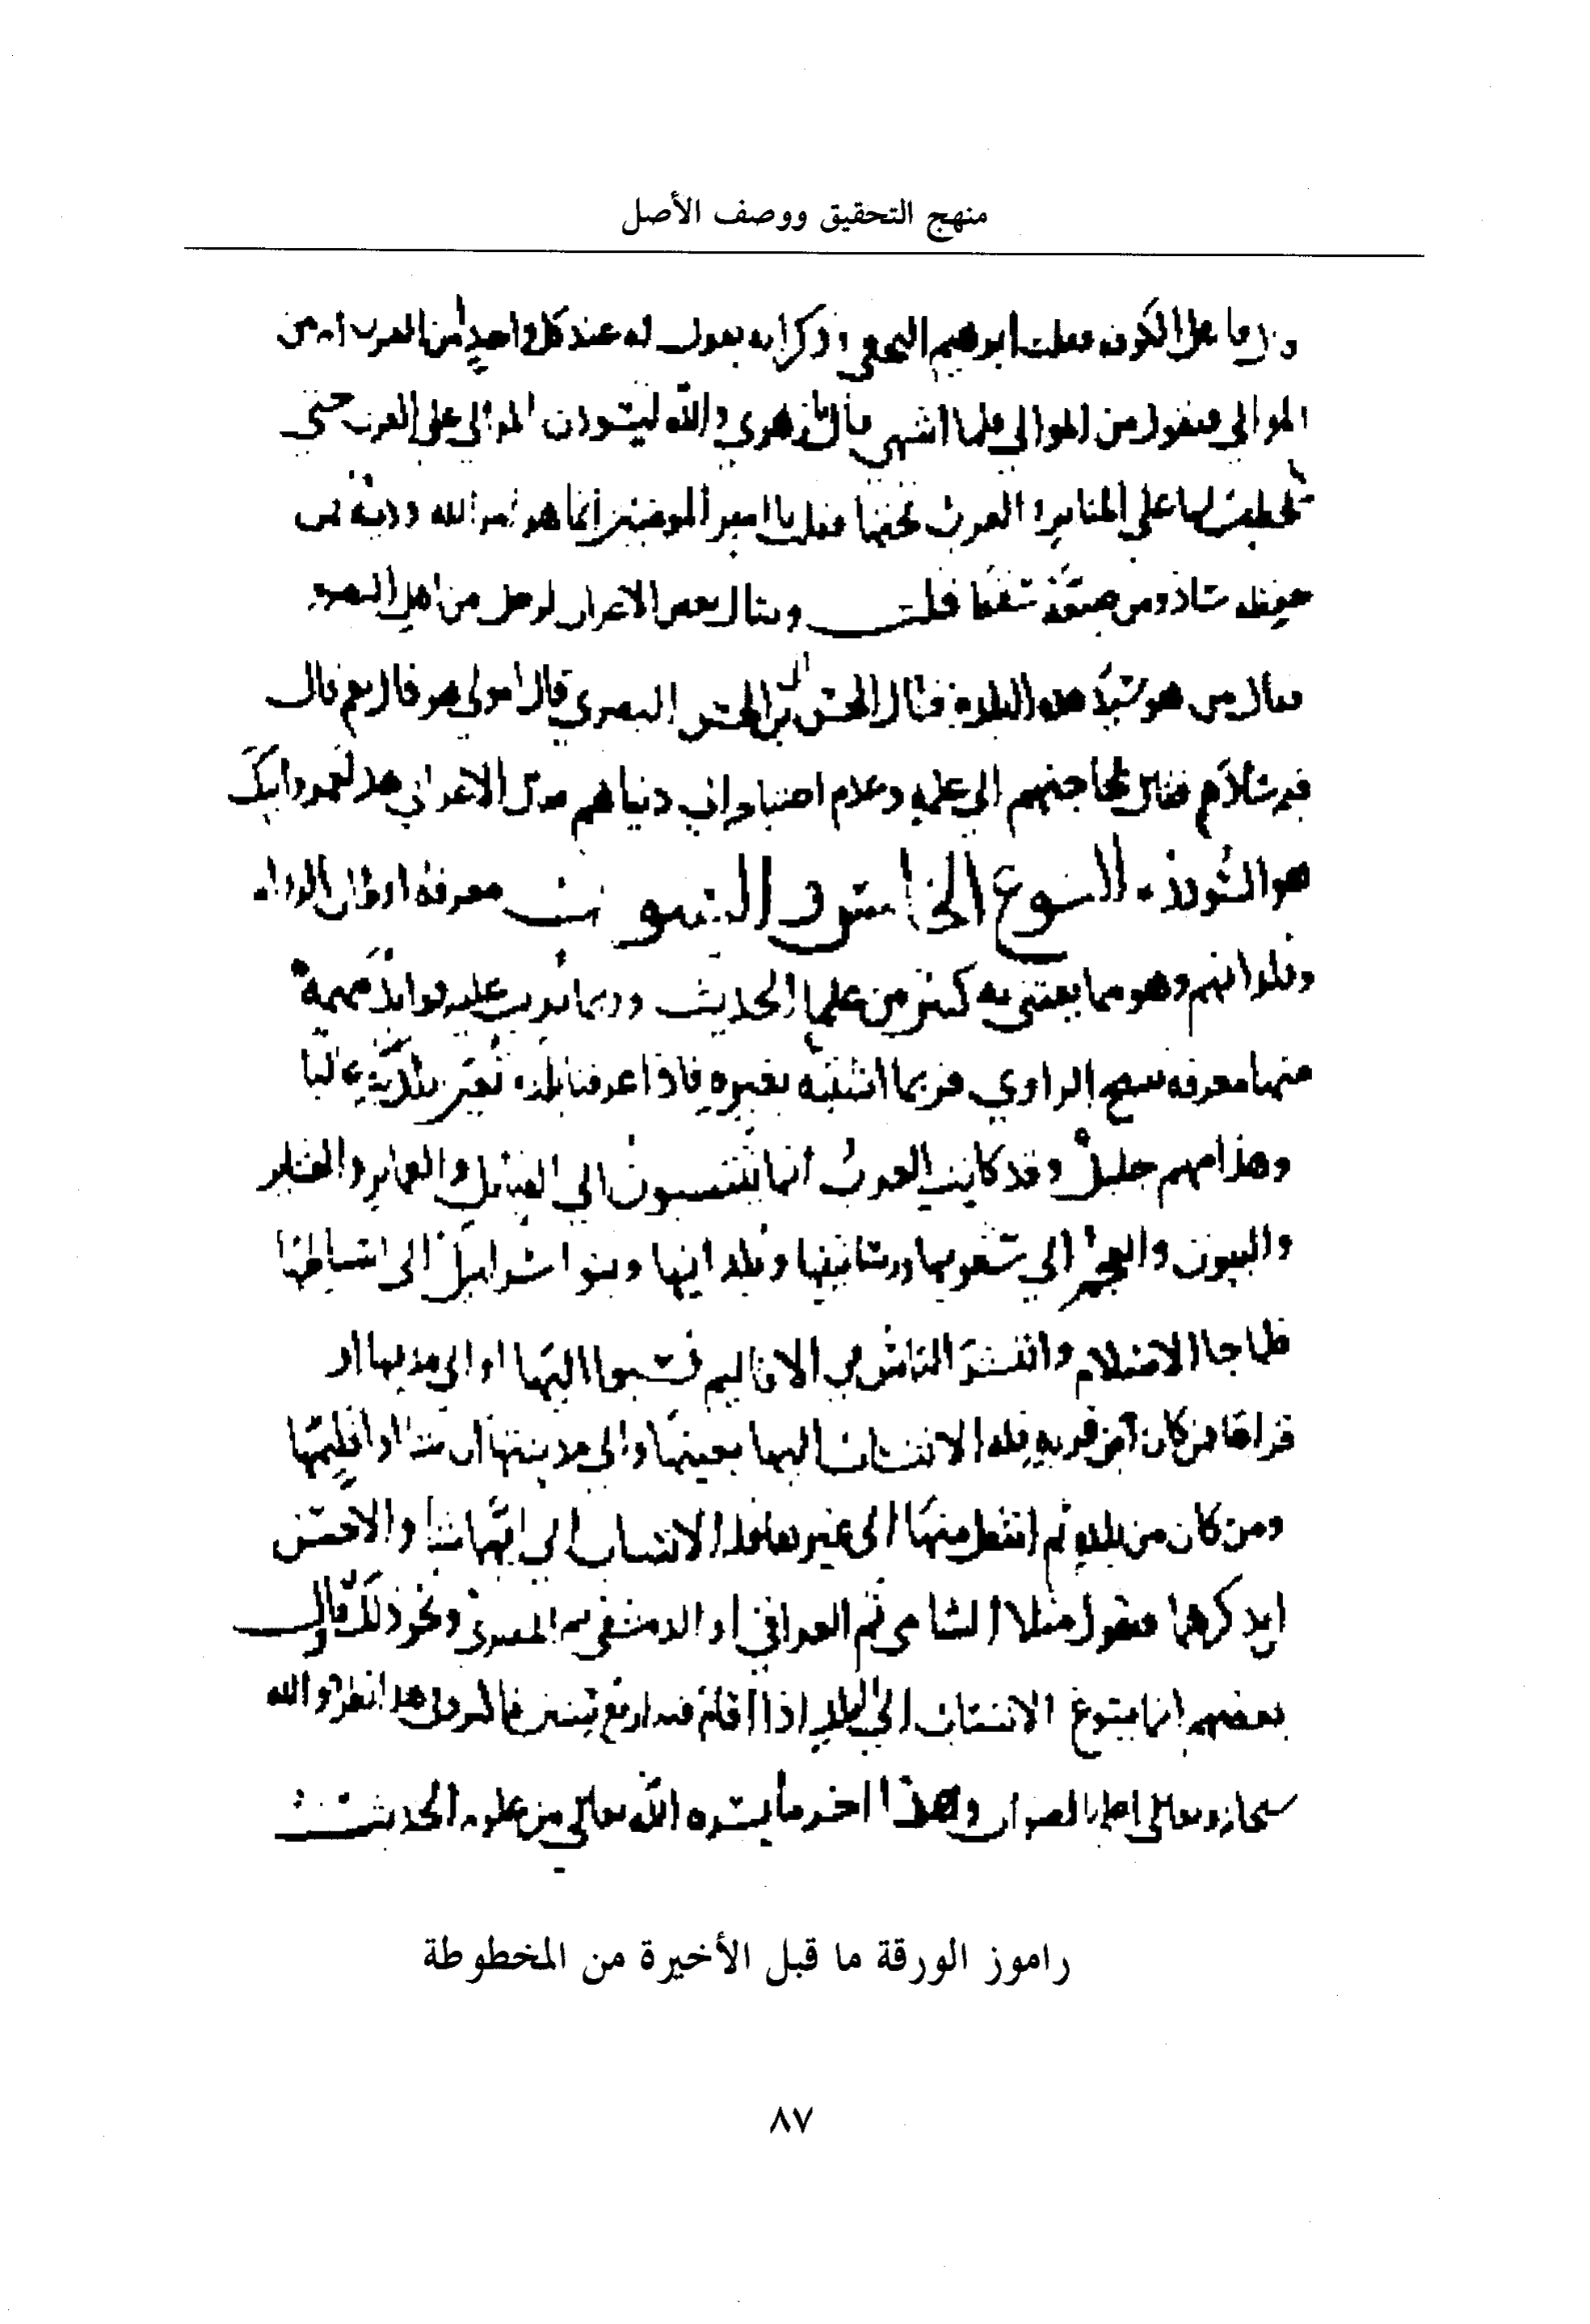 منهج التحقيق ووصف الأصل
قال فما على الكوفه فقلت ابرهيم النخعي وذكر انه يقول له عند كل واحد امن العرب ام من
الموالي فيقول من الموالي فلما انتهى قال يا زهري والله ليسودن الموالي على العرب حتى
يخطب لها على المنابر والعرب تحتها فقلت يا امير المومنين انما هو امر الله ودينه فمن
حفظه ساد ومن ضيعه سقط قلت وسال بعض الاعراب لرجل من اهل البصره
فقال من هو سيد هذه البلده فقال الحسن بن ابي الحسن البصري قال امولى هو قال نعم قال
فبم سادهم فقال بحاجتهم الى علمه وعدم احتياجه الى دنياهم فقال الاعرابي هذا لعمر ابيك
هو السودد . النوع الخامس والستون معرفة اوطان الرواه
وبلدانهم وهو مما يعتني به كثير من علما الحديث وربما ترتب عليه فوائد مهمة
منها معرفه شيخ الراوي فربما اشتبه بغيره فاذا عرفنا بلده تعين بلديه غالبا
وهذا مهم جليل وقد كانت العرب انما ينتسبون الى القبائل والعماير والعشاير
والبيوت والعجم الى شعوبها ورساتيقها وبلدانها وبنو اسرايل الى اسباطها
فلما جا الاسلام وانتشر الناس في الاقاليم نسبوا اليها او الى مدنها او
قراها فمن كان من قريه فله الانتساب اليها بعينها والى مدينتها ان شا او اقليمها
ومن كان من بلده ثم انتقل منها الى غيرها فله الانتساب الى ايهما شا والاحسن
ان يذكرهما فيقول مثلا الشامي ثم العراقي او الدمشقي ثم المصري ونحو ذلك وقال
بعضهم انما يسوغ الانتساب الى البلد اذا اقام فيه اربع سنين فاكثر وفي هذا نظر والله
سبحانه وتعالى اعلم بالصواب وهذا اخر ما يسره الله تعالى من علوم الحديث
راموز الورقة ما قبل الأخيرة من المخطوطة
٨٧